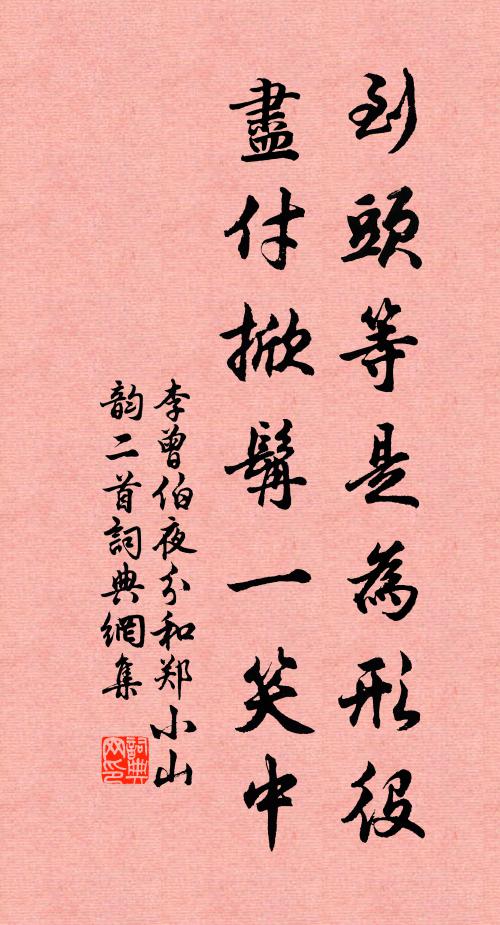 到頭等是為形役
盡付掀髯一笑中
李曾伯夜分和郑小山
韵二首詞典網集
詞典网印